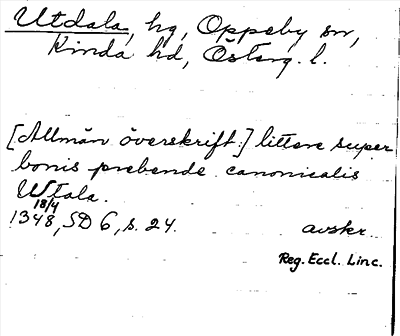 Utdala, hg, Oppeby sn,
Kinda hd, Österg. l.
[Allmän överskrift:] littere super
bonis prebende canonicalis
Utala.
18/4
1348, SD 6, s. 24. avskr.
Reg. Eccl. Linc.